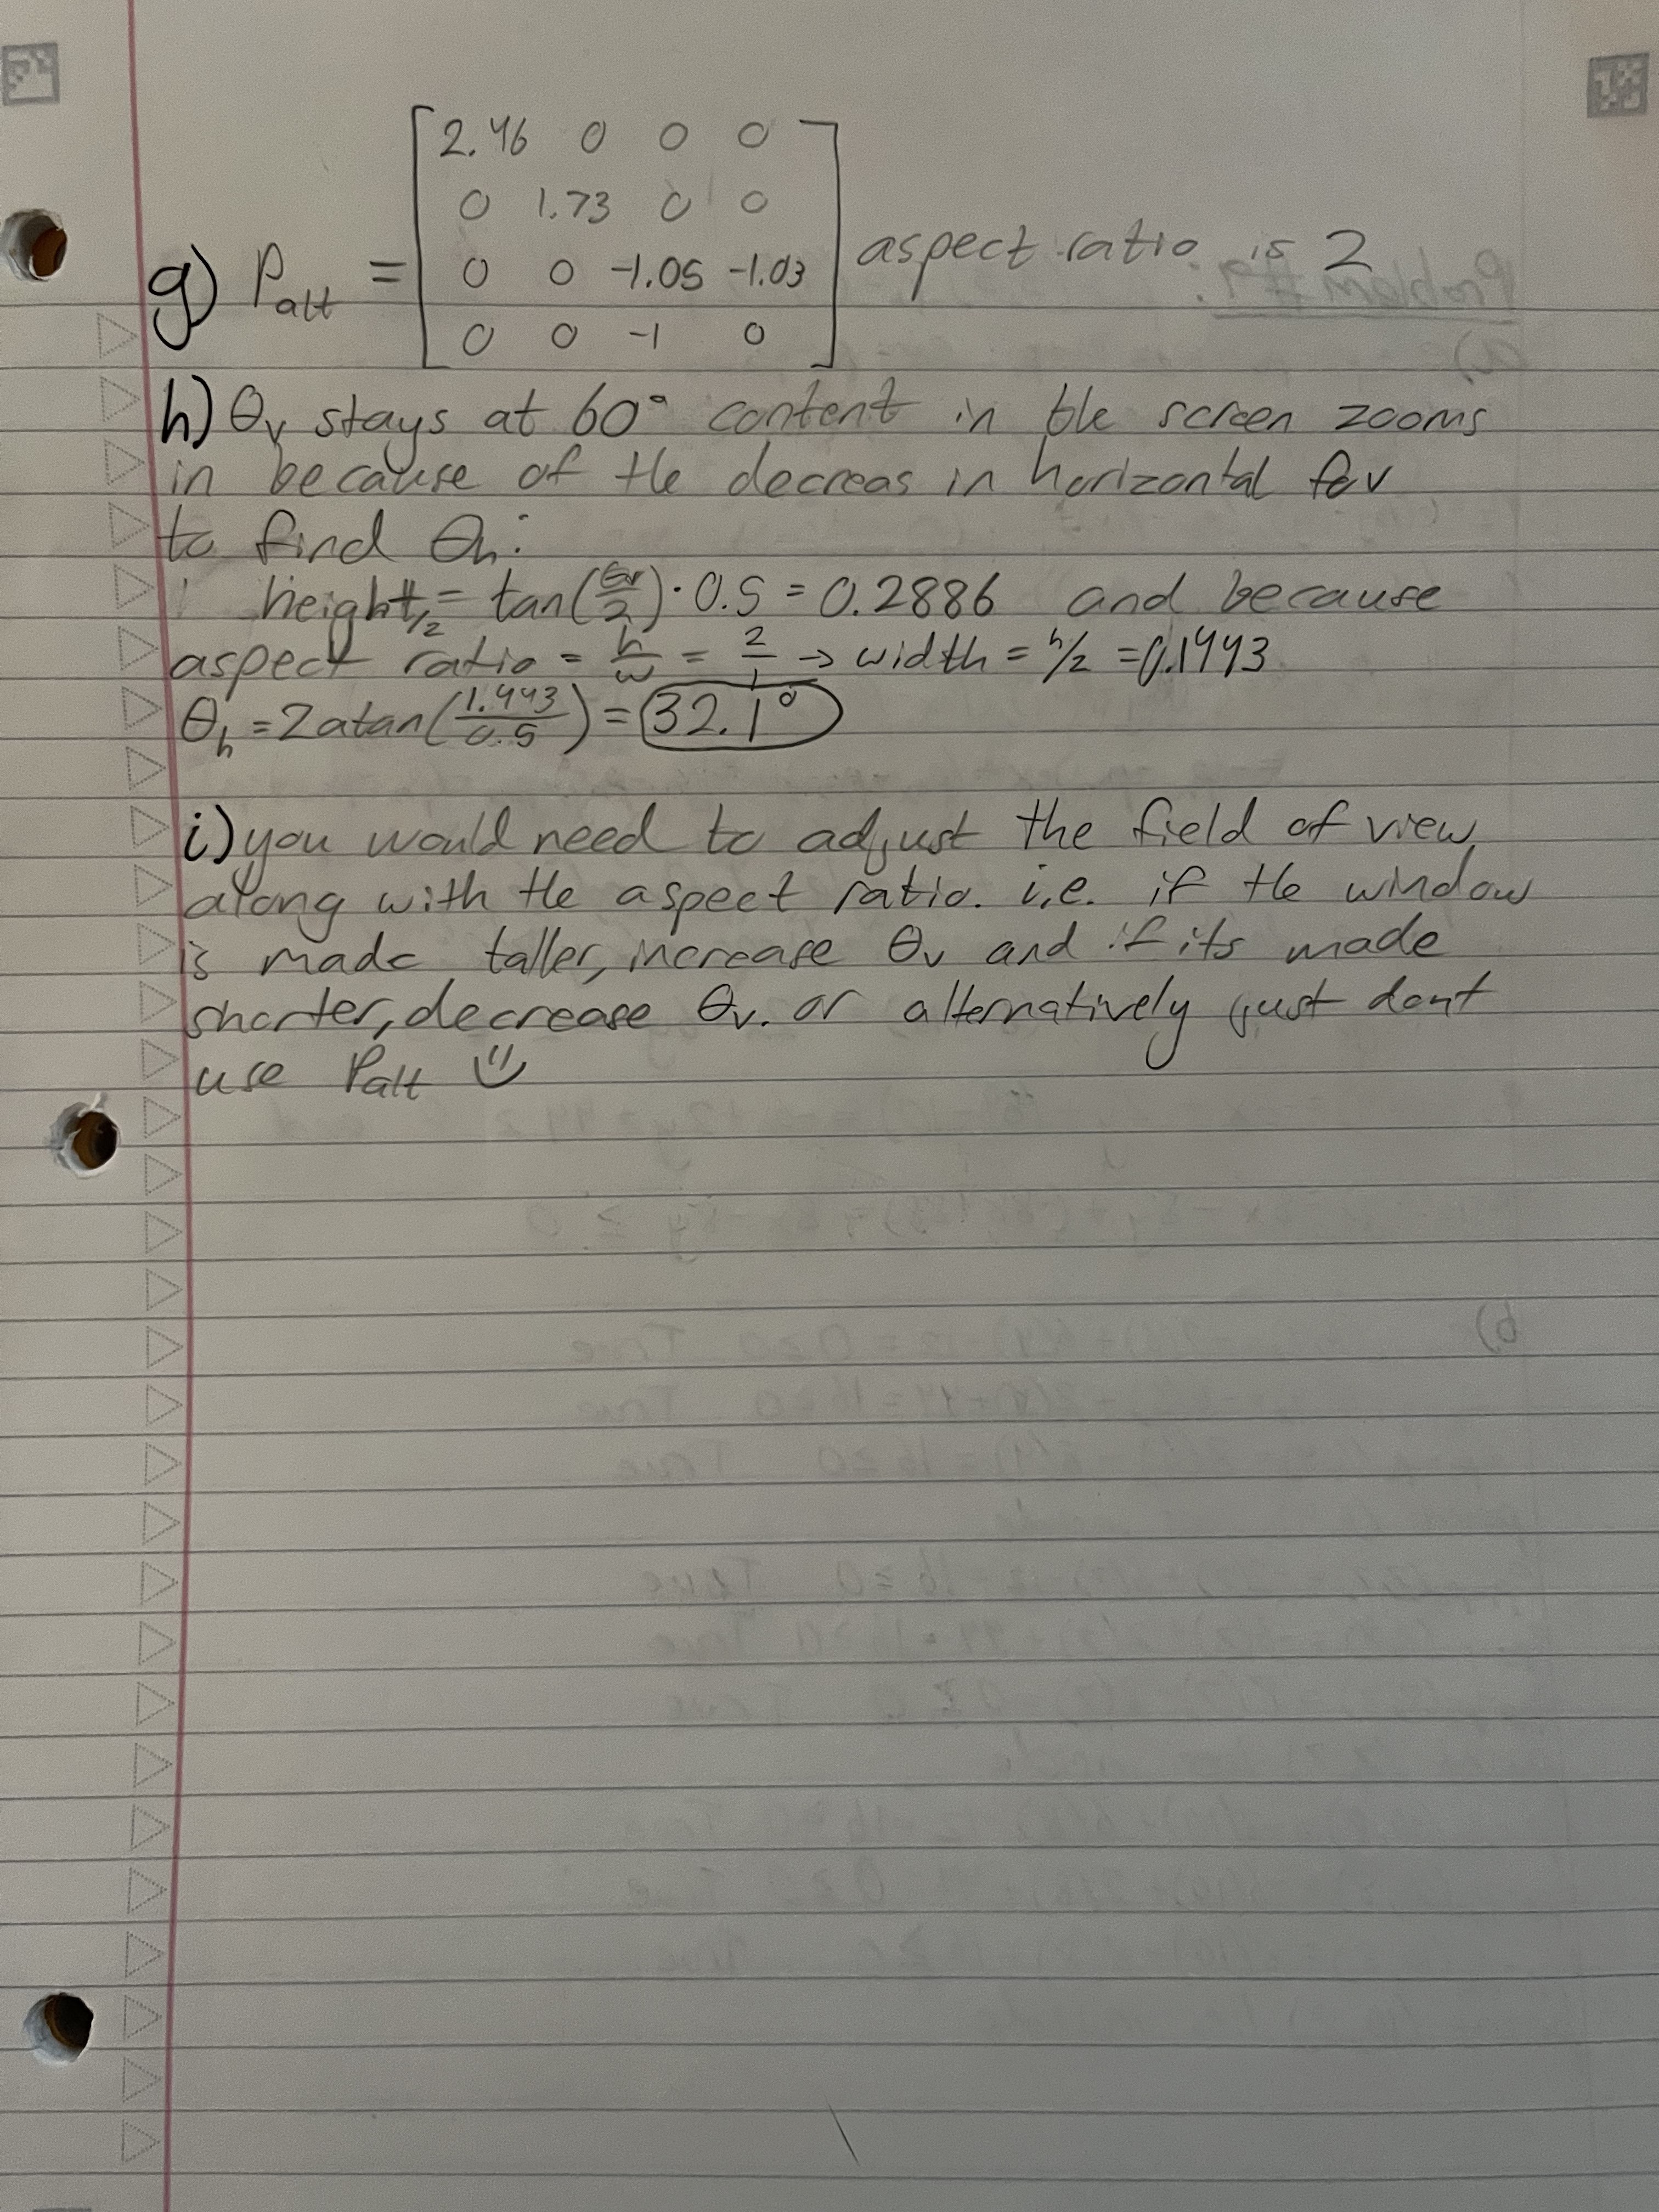 g) P_alt = [ 2.46 0 0 0
0 1.73 0 0
0 0 -1.05 -1.03
0 0 -1 0 ] aspect ratio is 2
h) θv stays at 60° content in the screen zooms
in because of the decreas in horizontal fov
to find θh:
height/2 = tan(θv/2) · 0.5 = 0.2886 and because
aspect ratio = h/w = 2/1 → width = h/2 = 0.1443
θh = 2atan(1.443/0.5) = 32.1°
i) you would need to adjust the field of view
along with the aspect ratio. i.e. if the window
is made taller, increase θv and if its made
shorter, decrease θv. or alternatively just dont
use Palt